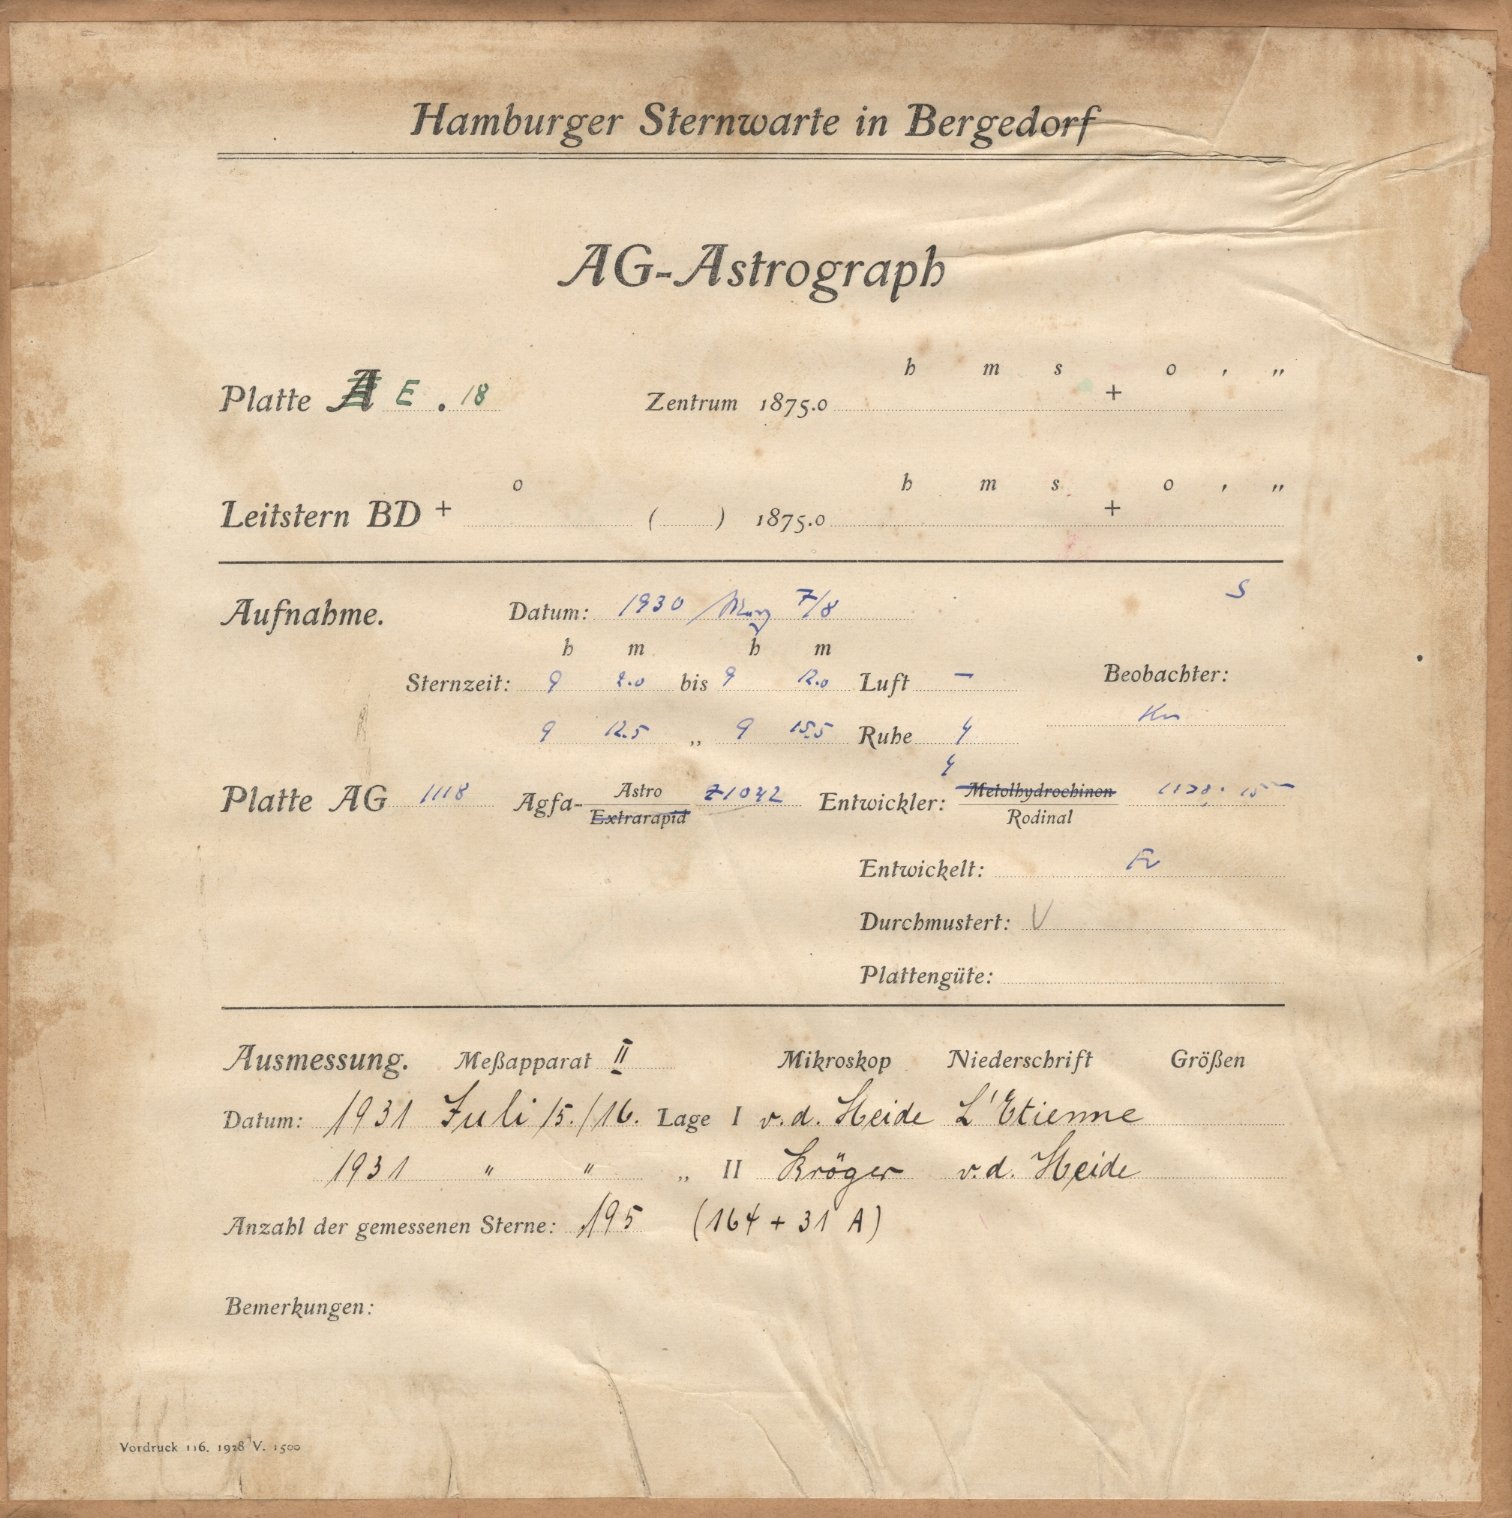 Hamburger Sternwarte in Bergedorf
AG-Astrograph
h m s o ' "
Platte E . 18 Zentrum 1875.0 +
o h m s o ' "
Leitstern BD + ( ) 1875.0 +
S
Aufnahme. Datum: 1930 März 7/8
h m h m
Sternzeit: 9 2.0 bis 9 12.0 Luft — Beobachter:
9 12.5 „ 9 15.5 Ruhe 4
Platte AG 1118 Agfa- Astro Z1042 Entwickler: Metolhydrochinon
Extrarapid Rodinal
Entwickelt:
Durchmustert: V
Plattengüte:
Ausmessung. Meßapparat II Mikroskop Niederschrift Größen
Datum: 1931 Juli 15./16. Lage I v.d. Heide L'Etienne
1931 " " „ II Kröger v.d. Heide
Anzahl der gemessenen Sterne: 195 (164 + 31 A)
Bemerkungen:
Vordruck 116. 1928 V. 1500